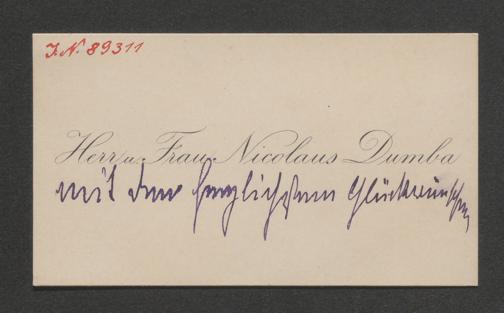 I.N. 89311
Herr u. Frau Nicolaus Dumba
mit den herzlichsten Glückwünschen